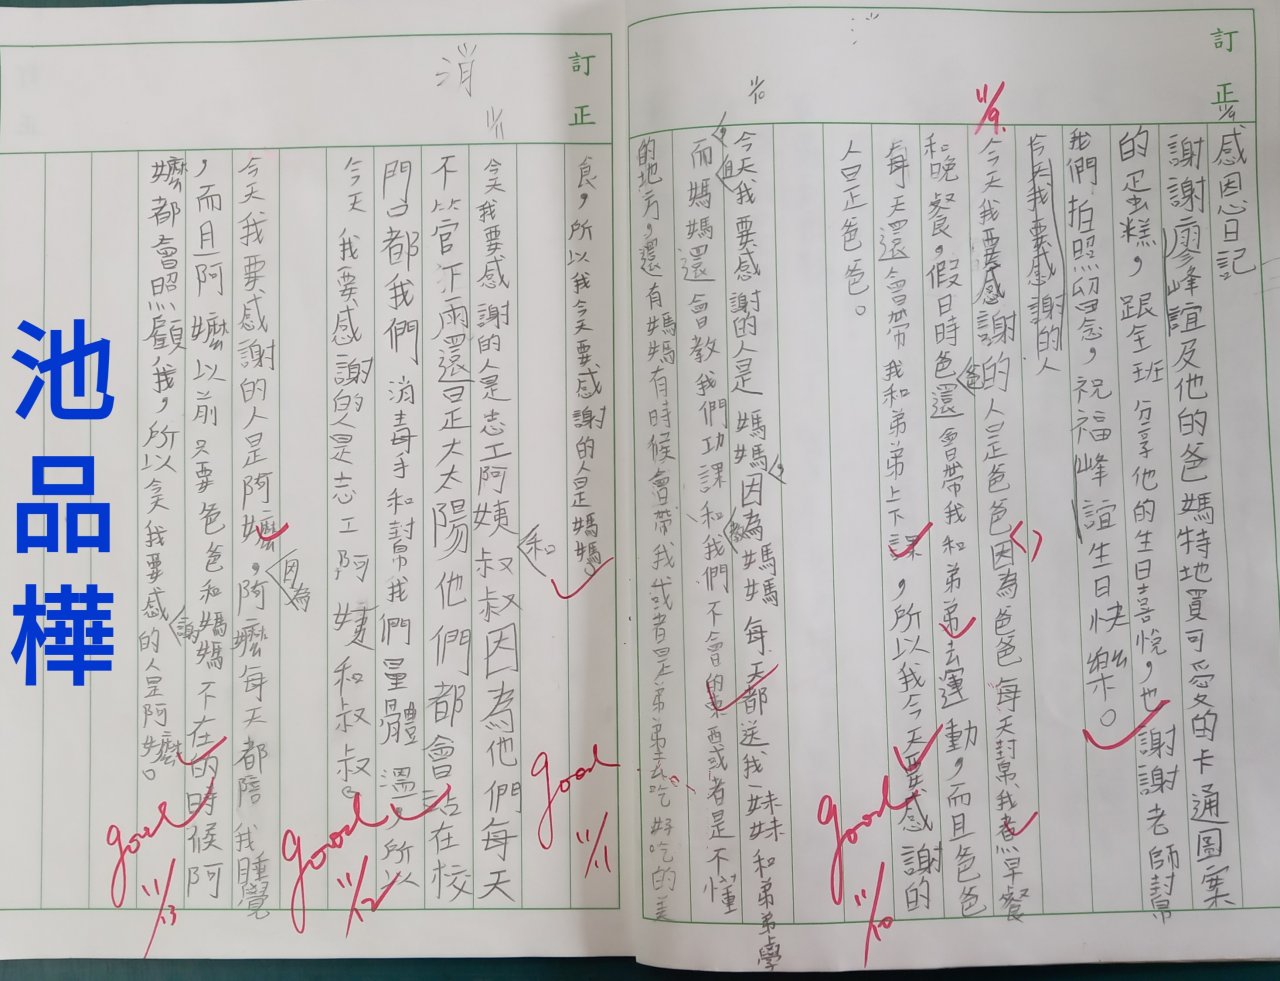 訂正
11/9
感恩日記
謝謝廖峰誼及他的爸媽特地買可愛的卡通圖案
的蛋糕，跟全班分享他的生日喜悅，也謝謝老師幫
我們拍照留念，祝福峰誼生日快樂。
今天我要感謝的人
11/9
今天我要感謝的人是爸爸因為爸爸每天幫我煮早餐
和晚餐，假日時爸爸還會帶我和弟弟去運動，而且爸爸
每天還會帶我和弟弟上下課，所以我今天要感謝的
人曰正爸爸。
good 11/10
11/10
今天我要感謝的人是媽媽，因為媽媽每天都送我妹妹和弟弟學
而且媽媽還會教我們功課和教我們不會的東西或者是不懂
的地方，還有媽媽有時候會帶我或者是弟弟去吃好吃的美
訂正
食，所以我今天要感謝的人是媽媽。
good 11/11
消
11/11
今天我要感謝的人是志工阿姨和叔叔因為他們每天
不管下雨還曰正大太陽他們都會站在校
門口都我們消毒手和幫我們量體溫，所以
今天我要感謝的人是志工阿姨和叔叔。
good 11/12
今天我要感謝的人是阿嬤，因為阿嬤每天都陪我睡覺
，而且阿嬤以前只要爸爸和媽媽不在的時候阿
嬤都會照顧我，所以今天我要感謝的人是阿嬤。
good 11/13
池品樺